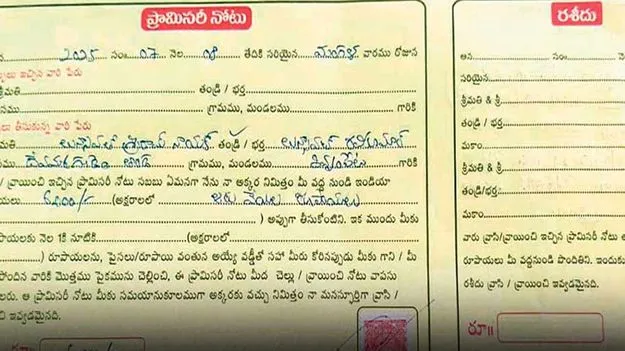 ప్రామిసరీ నోటు
2025 సం॥ 07 నెల 08 తేదికి సరియైన మంగళ వారము రోజున
ఇచ్చిన వారి పేరు
తండ్రి / భర్త
గ్రామము, మండలము గారికి
తీసుకున్న వారి పేరు
శ్రీరామ్ నాయక్ తండ్రి / భర్త
తాండ గ్రామము, మండలము గారికి
/ వ్రాయించి ఇచ్చిన ప్రామిసరీ నోటు సబబు ఏమనగా నేను నా అక్కర నిమిత్తం మీ వద్ద నుండి ఇండియా
6000/- (అక్షరాలలో ఆరు వేలు రూపాయలు
) అప్పుగా తీసుకొంటిని. ఇక ముందు మీకు
నెల 1కి నూటికి (అక్షరాలలో
) రూపాయలను, పైసలు/రూపాయి వంతున అయ్యే వడ్డీతో సహా మీరు కోరినపుడు మీకు గాని / మీ
పొందిన వారికి మొత్తము పైకమును చెల్లించి, ఈ ప్రామిసరీ నోటు మీద చెల్లు / వ్రాయించి నోటు వాపసు
ఆ ప్రామిసరీ నోటు మీకు సమయానుకూలముగా అక్కరకు వచ్చు నిమిత్తం నా మనస్ఫూర్తిగా వ్రాసి /
ఇవ్వడమైనది.
రశీదు
సం॥
సరియైన
శ్రీమతి & శ్రీ
తండ్రి / భర్త
మకాం
శ్రీమతి & శ్రీ
తండ్రి/భర్త:
మకాం
వారు వ్రాసి/వ్రాయించి ఇచ్చిన ప్రామిసరీ నోటు
రూపాయలు మీ వద్దనుండి పొందితిని. ఇందుకు
రశీదు వ్రాసి / వ్రాయించి ఇవ్వడమైనది.
రూ॥